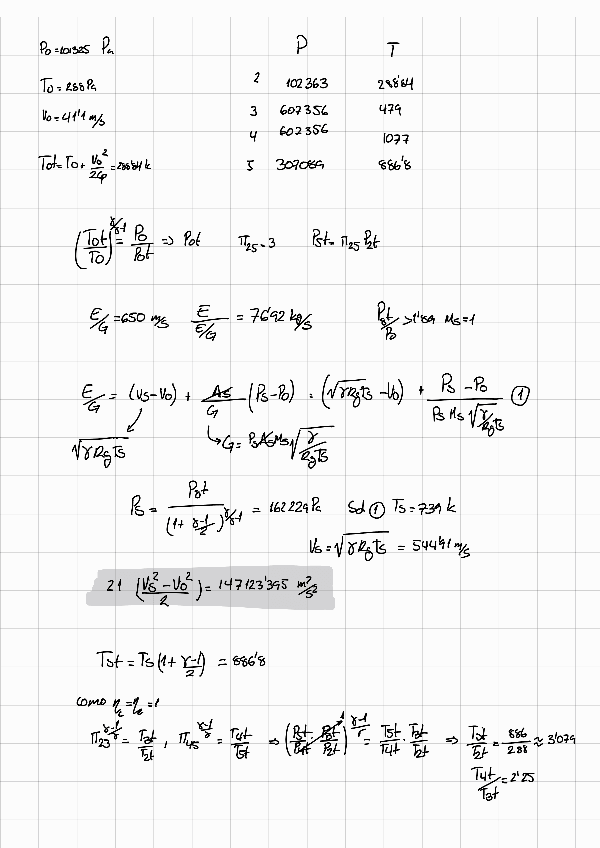 P₀=101325 Pa
P T
T₀=288Pa
2 102363 288'84
V₀=41'1 m/s
3 607356 479
4 602356 1077
T₀t=T₀+V₀²/2Cp=288'84 k
5 307089 886'8
(T₀t/T₀)^γ/γ-1 = P₀/P₀t ⇒ P₀t π₂₅=3 P₅t=π₂₅P₂t
E/G=650 m/s E/(E/G) = 76'92 kg/s P₅t/P₀>1'89 M₅=1
E/G = (V₅-V₀) + A₅/G (P₅-P₀) = (√γRgT₅ -V₀) + (P₅-P₀)/(P₅M₅√γ/RgT₅) ①
√γRgT₅ ↳G=P₅A₅M₅√γ/RgT₅
P₅ = P₅t/(1+γ-1/2)^γ/γ-1 = 162229Pa Sol ① T₅=739 k
V₅=√γRgT₅ = 544'91 m/s
21 (V₅²-V₀²/2)=147123'395 m²/s²
T₅t=T₅(1+γ-1/2) = 886'8
como η =η =1
π₂₃^γ-1/γ = T₃t/T₂t , π₄₅^γ-1/γ = T₄t/T₅t ⇒ (P₅t/P₄t · P₃t/P₂t)^γ-1/γ = T₅t/T₄t · T₃t/T₂t ⇒ T₅t/T₂t = 886/288 ≈ 3'079
T₄t/T₃t=2'25